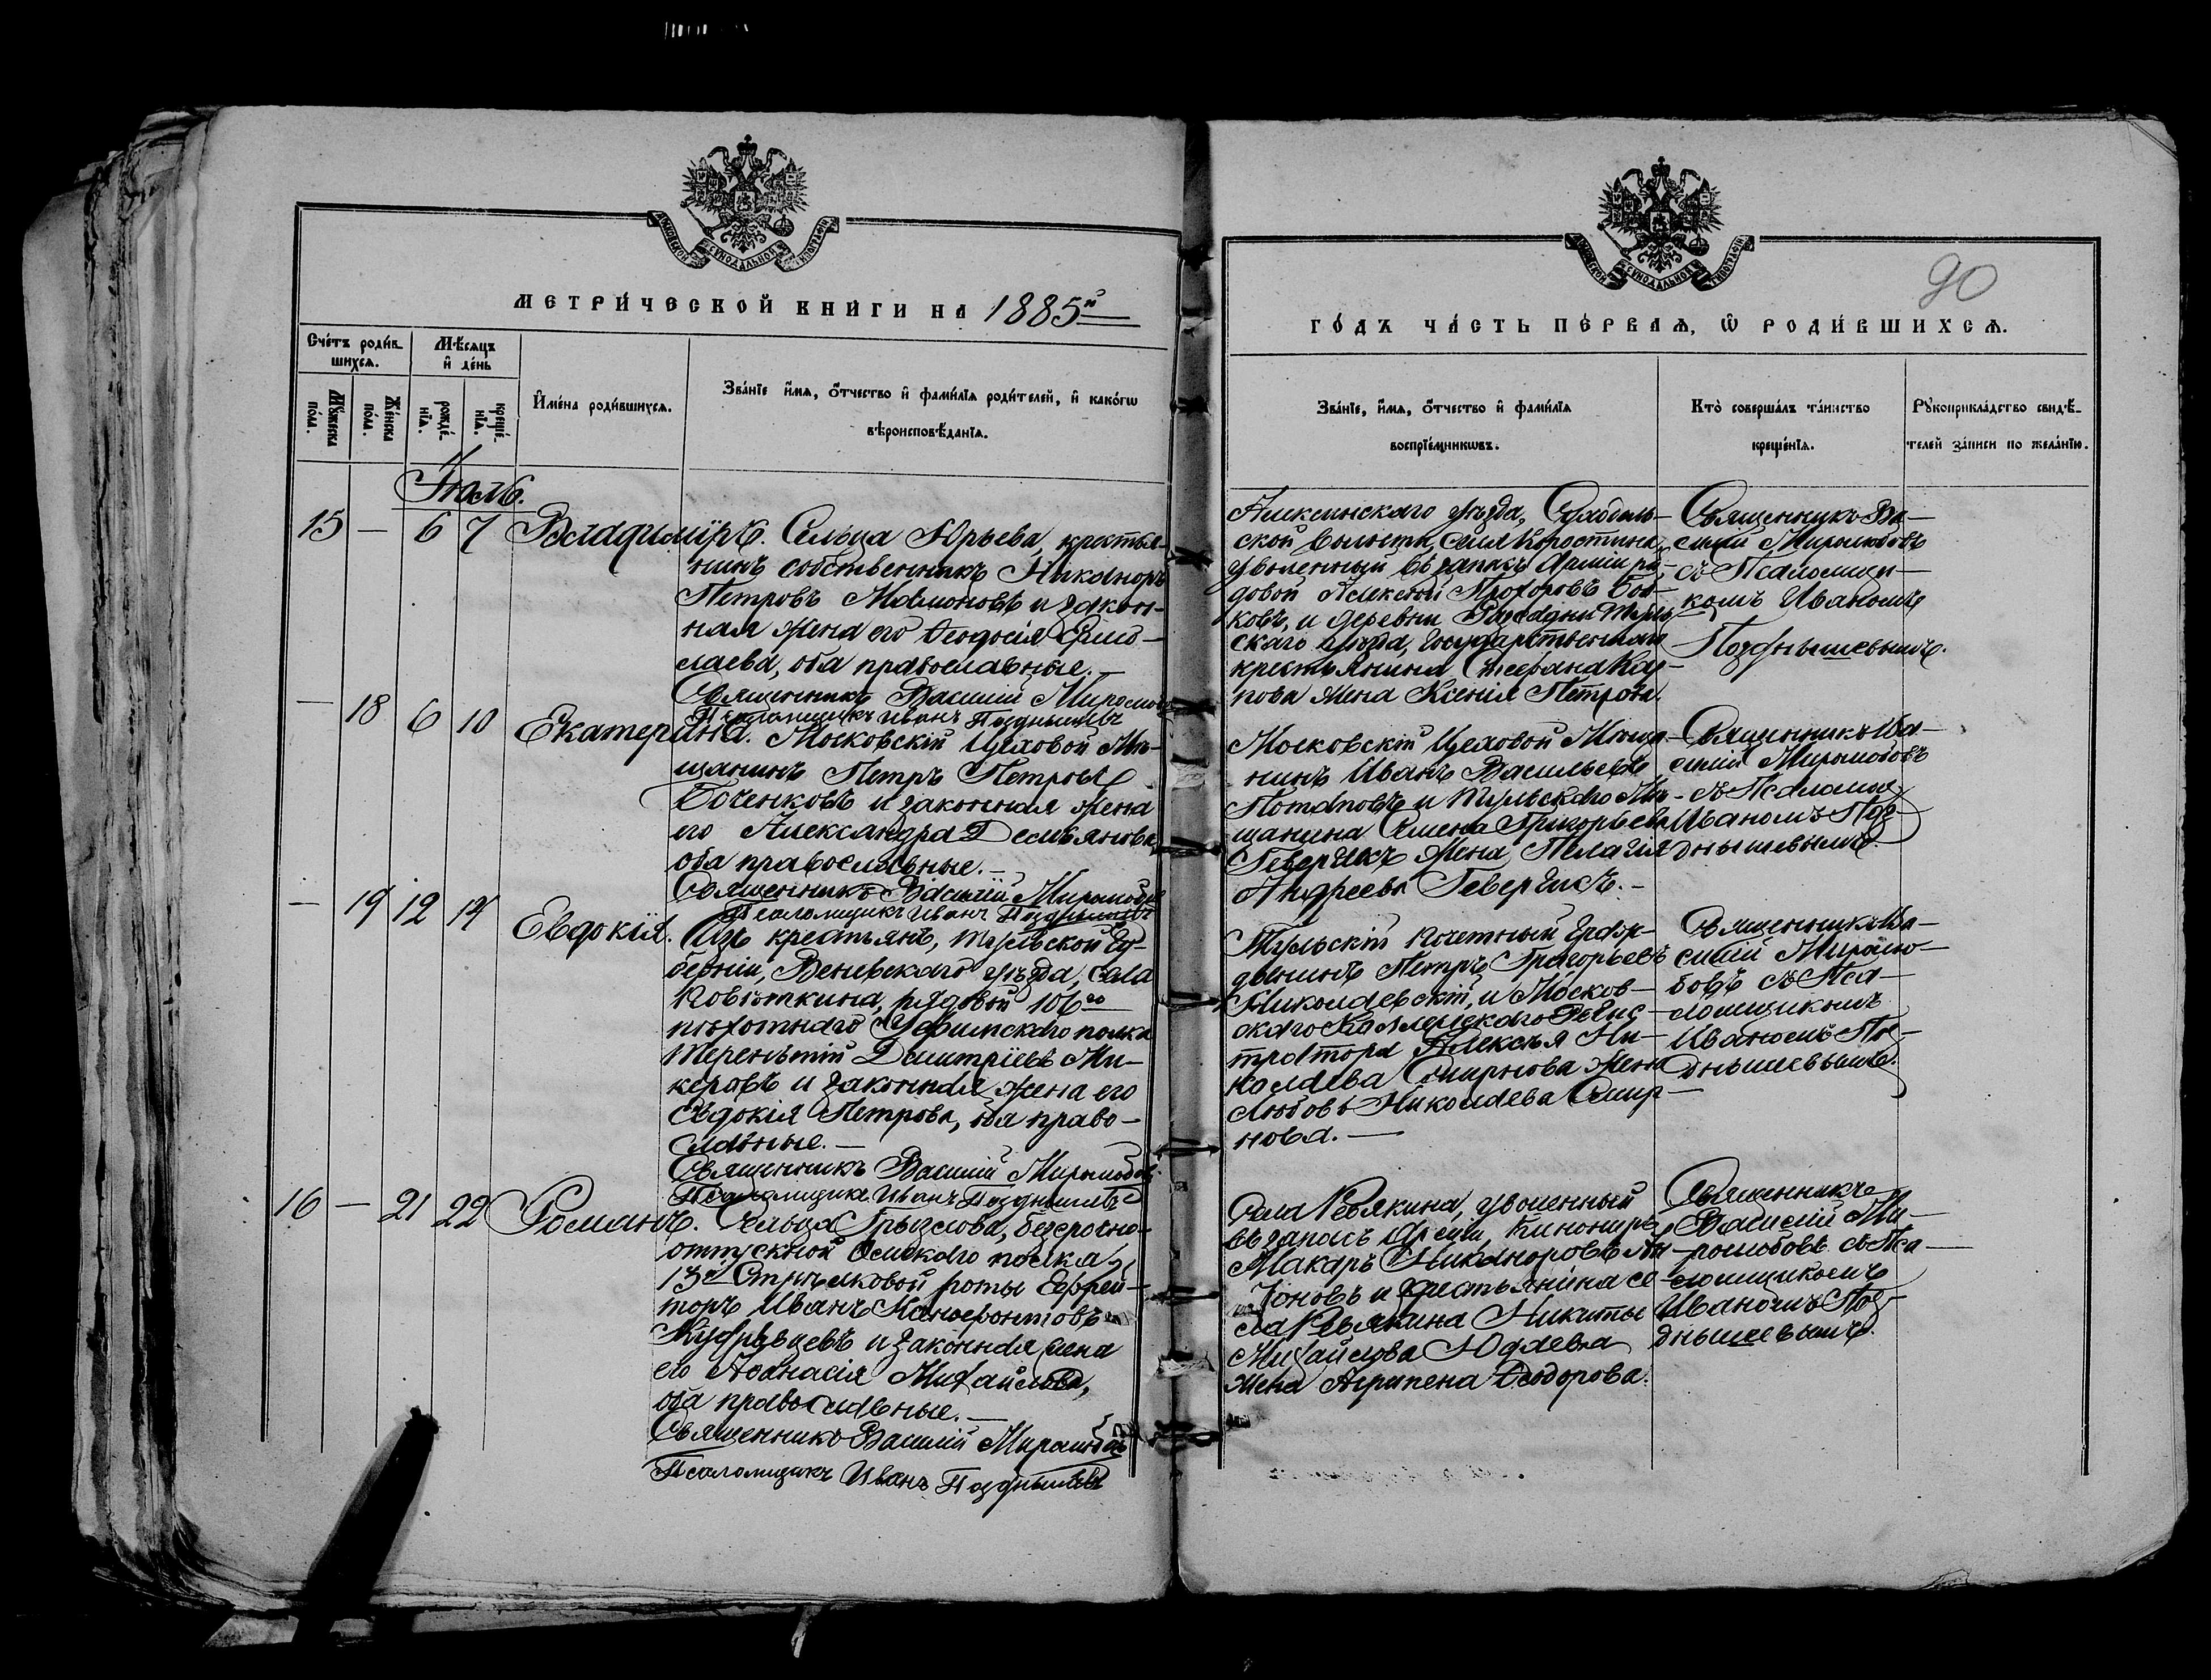 МОСКОВСКОЙ СѴНОДАЛЬНОЙ ТИПОГРАФІИ
МЕТРИ́ЧЕСКОЙ КНИ́ГИ НА 1885й
Сче́тъ роди́в-
шихсѧ.
Мѣ́сѧцъ
и҆ де́нь
Мꙋ́жеска
по́ла.
Же́нска
по́ла.
рожде́-
нїѧ.
креще́-
нїѧ.
И҆мена̀ роди́вшихсѧ.
Зва́нїе и҆́мѧ, ѻ҆́тчество и҆ фами́лїѧ роди́телей, и҆ како́гѡ
вѣроисповѣ́данїѧ.
Іюль.
15 — 6 7 Владиміръ. Сельца Юрьева, крестья-
нинъ собственникъ Никаноръ
Петровъ Мамоновъ и закон-
ная жена его Ѳеодосія Ермо-
лаева, оба православные. —
Священникъ Василій Миролюбовъ
Псаломщикъ Иванъ Позднышевъ
— 18 6 10 Екатерина. Московскій Цеховой Мѣ-
щанинъ Петръ Петровъ
Боченковъ и законная жена
его Александра Демьянова,
оба православные. —
Священникъ Василій Миролюбовъ
Псаломщикъ Иванъ Позднышевъ
— 19 12 14 Евдокія. Изъ крестьянъ, Тульской Гу-
берніи, Веневскаго уѣзда, села
рядовой 106го
пѣхотнаго Уфимскаго полка
Терентій Димитріевъ Ми-
керовъ и законная жена его
Евдокія Петрова, оба право-
славные. —
Священникъ Василій Миролюбовъ
Псаломщикъ Иванъ Позднышевъ
16 — 21 22 Романъ. Сельца Грызлова, безсрочно-
отпускной полка
13й Стрѣлковой роты Ефрей-
торъ Иванъ Ксенофонтовъ
Кудрявцевъ и законная жена
его Аѳанасія Михайлова,
оба православные. —
Священникъ Василій Миролюбовъ
Псаломщикъ Иванъ Позднышевъ
МОСКОВСКОЙ СѴНОДАЛЬНОЙ ТИПОГРАФІИ
90
ГО́ДЪ ЧА́СТЬ ПЕ́РВАѦ, Ѡ҆ РОДИ́ВШИХСѦ.
Зва́нїе, и҆́мѧ, ѻ҆́тчество и҆ фами́лїѧ
воспрїе́мникѡвъ.
Кто̀ соверша́лъ та́инство
креще́нїѧ.
Рꙋкоприкла́дство свидѣ́-
телей за́писи по жела́нїю.
Алексинскаго уѣзда,
ской волости, села Коростина,
уволенный въ запасъ Арміи ря-
довой Алексѣй Прохоровъ Боч-
ковъ, и деревни Туль-
скаго уѣзда, государственнаго
крестьянина Стефана Кар-
пова жена Ксенія Петрова.
Священникъ Ва-
силій Миролюбовъ
съ Псаломщи-
комъ Иваномъ
Позднышевымъ.
Московскій Цеховой Мѣща-
нинъ Иванъ Васильевъ
Потаповъ и Тульскаго Мѣ-
щанина Семена Григорьева
жена Пелагія
Андреева
Священникъ Ва-
силій Миролюбовъ
съ Псаломщ.
Иваномъ Поз-
днышевымъ.
Тульскій Почетный Граж-
данинъ Петръ Григорьевъ
Николаевскій, и Москов-
скаго Коллежскаго Регис-
тратора Алексѣя Ни-
колаева Смирнова жена
Любовь Николаева Смир-
нова. —
Священникъ Ва-
силій Миролю-
бовъ съ Пса-
ломщикомъ
Иваномъ Поз-
днышевымъ.
Села Ревякина, уволенный
въ запасъ Арміи,
Макаръ Никаноровъ Ан-
тоновъ и крестьянина се-
ла Ревякина Никиты
Михайлова Юдаева
жена Агрипена Ѳеодорова.
Священникъ
Василій Ми-
ролюбовъ съ Пса-
ломщикомъ
Иваномъ Поз-
днышевымъ.